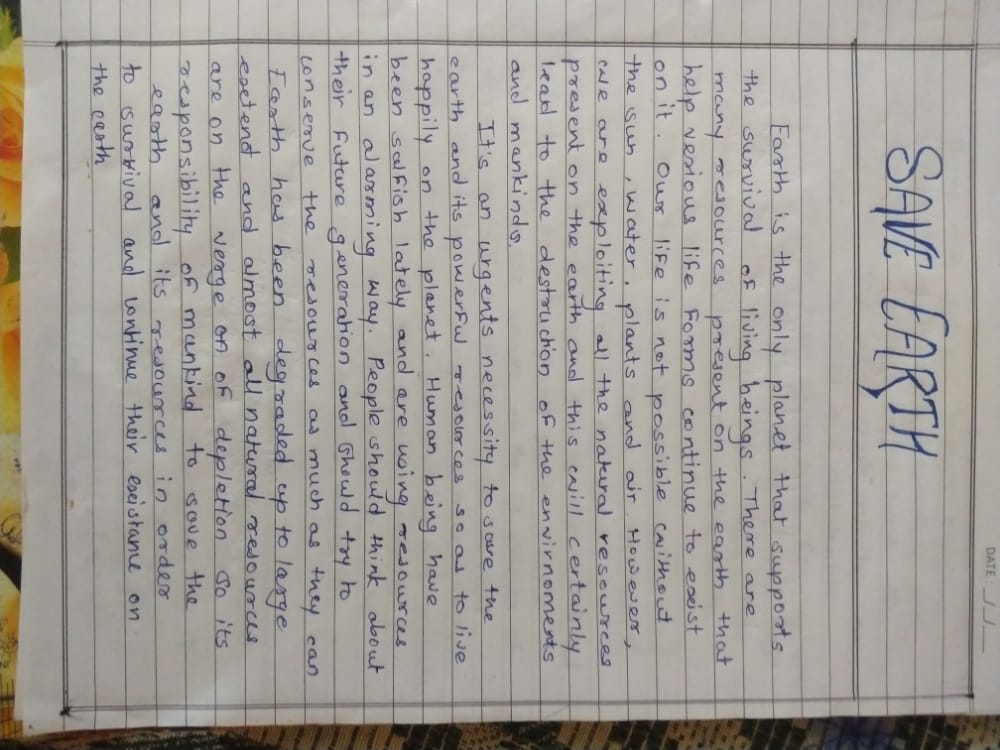 DATE: _/_/_
SAVE EARTH
Earth is the only planet that supports
the survival of living beings. There are
many resources present on the earth that
help verious life forms continue to exist
on it. Our life is not possible without
the sun, water, plants and air. However,
we are exploiting all the natural resources
present on the earth and this will certainly
lead to the destruction of the envirnoments
and mankinds.
It's an urgents necessity to save the
earth and its powerful resources so as to live
happily on the planet. Human being have
been salfish lately and are using resources
in an alarming way. People should think about
their future generation and should try to
conserve the resources as much as they can
Earth has been degraded up to large
extend and almost all natural resources
are on the verge on of depletion so its
responsibility of mankind to save the
earth and its resources in order
to survival and continue their existance on
the earth